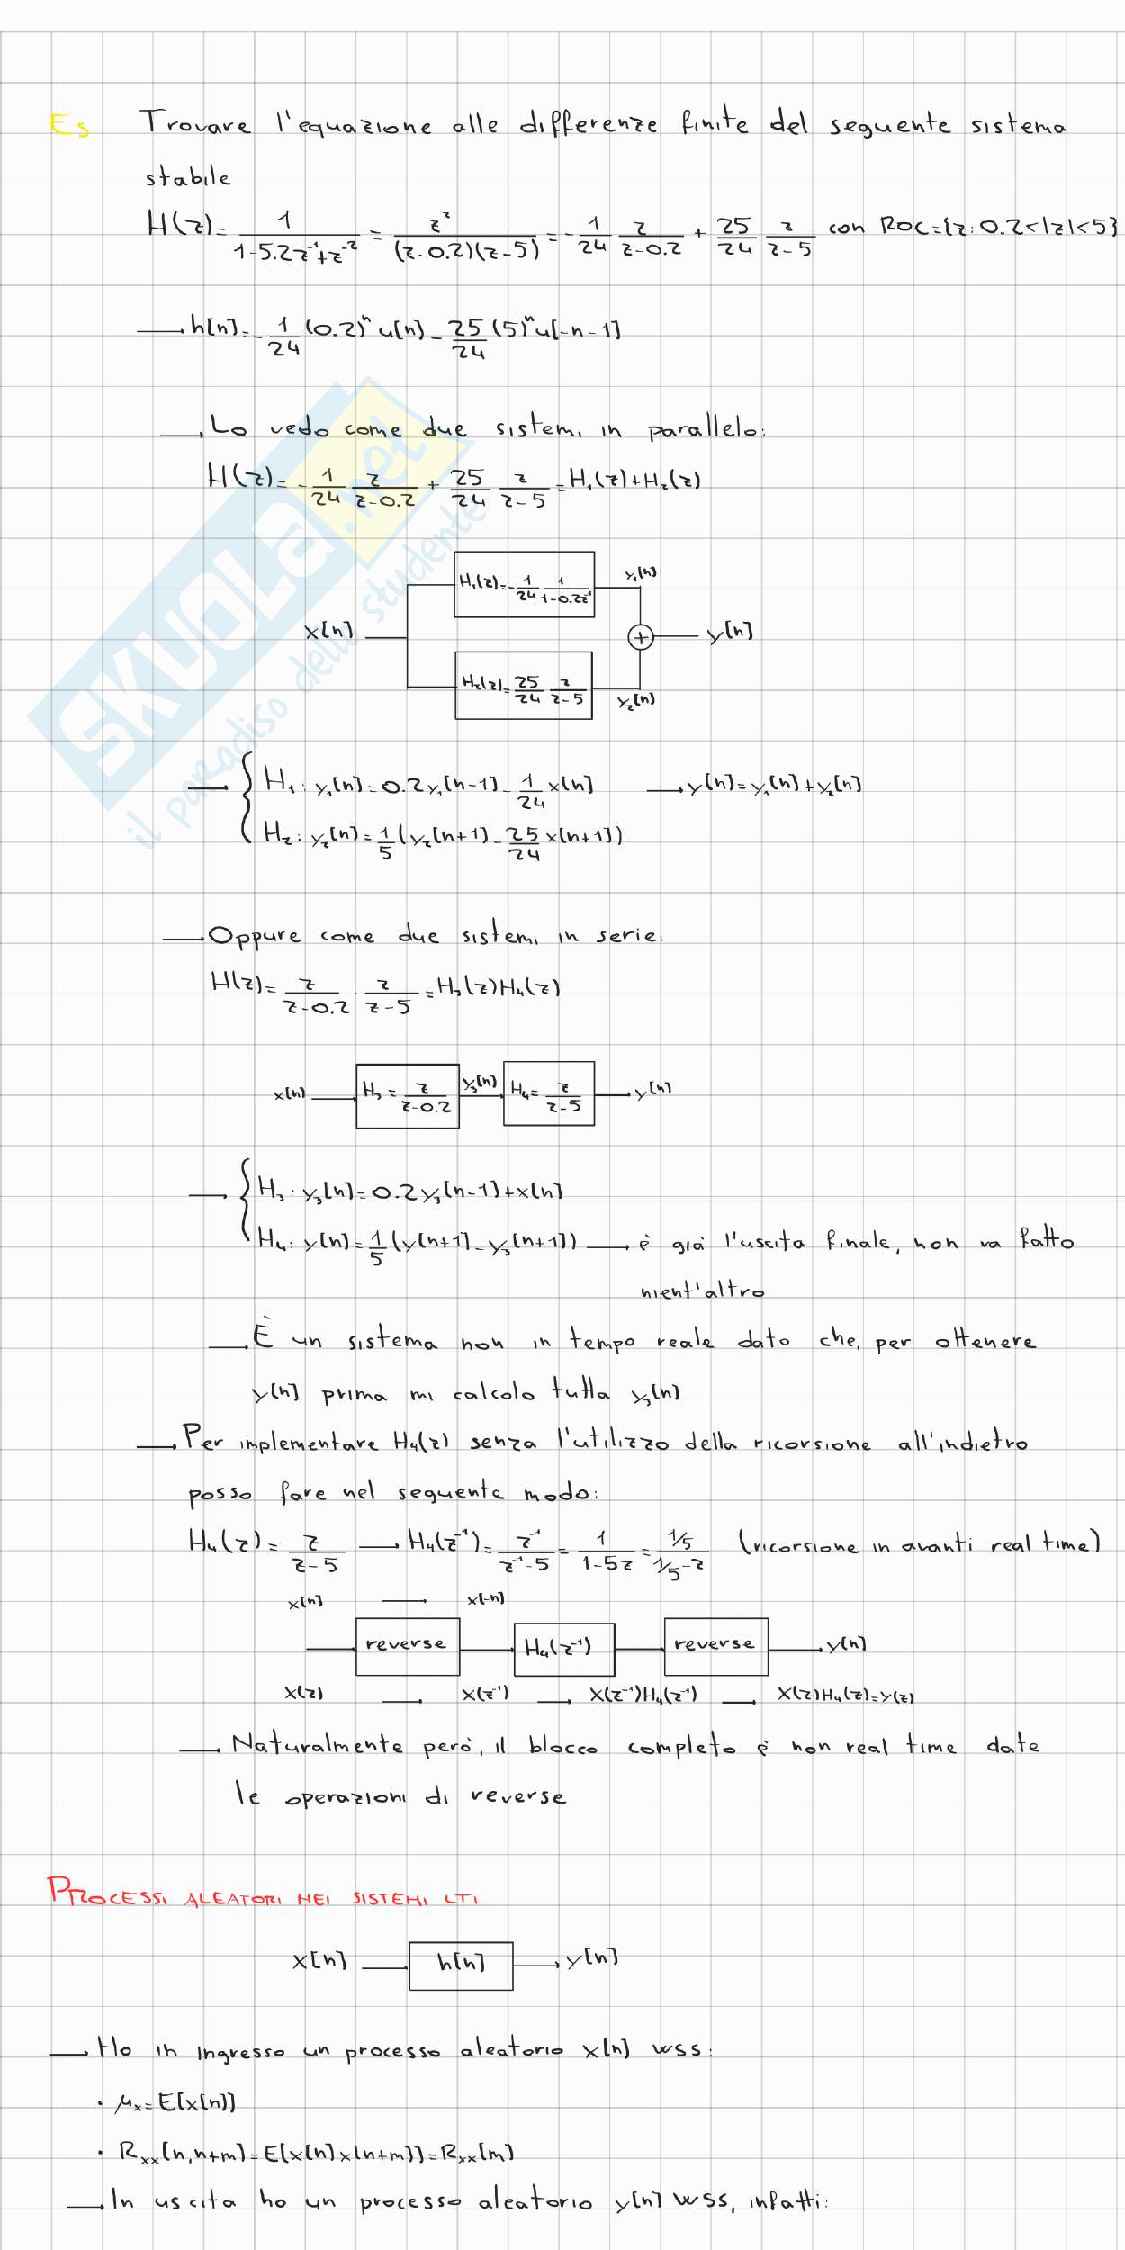 Es Trovare l'equazione alle differenze finite del seguente sistema
stabile
H(z)= 1/(1-5.2z⁻¹+z⁻²) = z²/((z-0.2)(z-5)) = -1/24 z/(z-0.2) + 25/24 z/(z-5) con ROC={z: 0.2<|z|<5}
→ h[n]= -1/24 (0.2)ⁿ u[n] - 25/24 (5)ⁿ u[-n-1]
→ Lo vedo come due sistemi in parallelo:
H(z)= -1/24 z/(z-0.2) + 25/24 z/(z-5) = H₁(z)+H₂(z)
H₁(z)= -1/24 1/(1-0.2z⁻¹) y₁[n]
x[n] + y[n]
H₂(z)= 25/24 z/(z-5) y₂[n]
→ { H₁: y₁[n]=0.2y₁[n-1] - 1/24 x[n] → y[n]=y₁[n]+y₂[n]
H₂: y₂[n]= 1/5 (y₂[n+1] - 25/24 x[n+1])
→ Oppure come due sistemi in serie
H(z)= z/(z-0.2) z/(z-5) = H₃(z)H₄(z)
x[n] H₃= z/(z-0.2) y₃[n] H₄= z/(z-5) y[n]
→ { H₃: y₃[n]=0.2y₃[n-1]+x[n]
H₄: y[n]= 1/5 (y[n+1] - y₃[n+1]) → è già l'uscita finale, non va fatto
nient'altro
→ È un sistema non in tempo reale dato che, per ottenere
y[n] prima mi calcolo tutta y₃[n]
→ Per implementare H₄(z) senza l'utilizzo della ricorsione all'indietro
posso fare nel seguente modo:
H₄(z)= z/(z-5) → H₄(z⁻¹)= z⁻¹/(z⁻¹-5) = 1/(1-5z) = (1/5)/(1/5-z) (ricorsione in avanti real time)
x[n] → x[-n]
reverse H₄(z⁻¹) reverse y[n]
X(z) → X(z⁻¹) → X(z⁻¹)H₄(z⁻¹) → X(z)H₄(z)=Y(z)
→ Naturalmente però, il blocco completo è non real time date
le operazioni di reverse
PROCESSI ALEATORI NEI SISTEMI LTI
x[n] h[n] y[n]
→ Ho in ingresso un processo aleatorio x[n] WSS:
• μₓ=E[x[n]]
• Rₓₓ[n,n+m]=E[x[n]x[n+m]]=Rₓₓ[m]
→ In uscita ho un processo aleatorio y[n] WSS, infatti:
SKUOLA.net
il paradiso dello studente